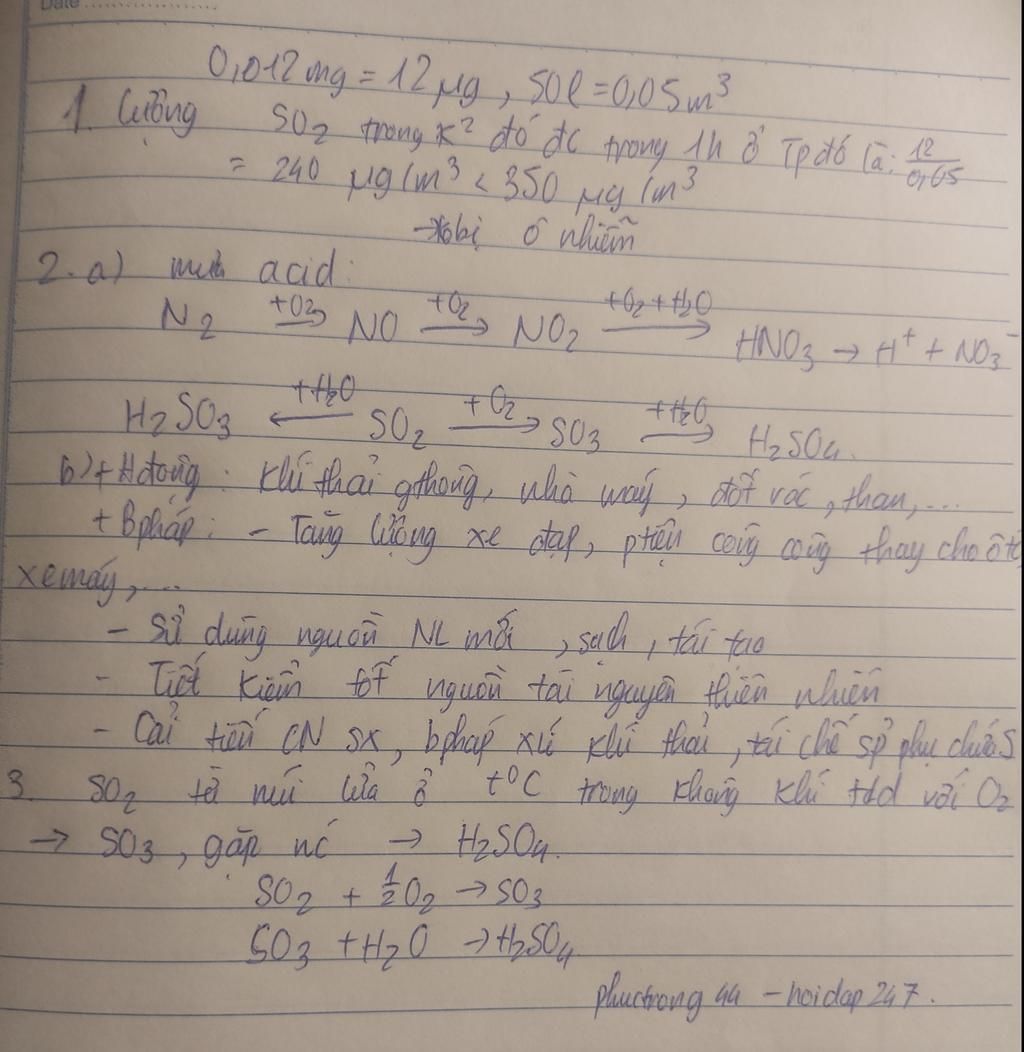 Date
0,012 mg = 12 μg, 50l = 0,05 m³
1. Lượng SO₂ trong k² đó đc trong 1h ở Tp đó là: 12/0,05
= 240 μg/m³ < 350 μg/m³
→ bị ô nhiễm
2. a) mưa acid:
N₂ +O₂→ NO +O₂→ NO₂ +O₂+H₂O→ HNO₃ → H⁺ + NO₃⁻
H₂SO₃ ←+H₂O SO₂ +O₂→ SO₃ +H₂O→ H₂SO₄.
b) + Hđộng: khí thải gthông, nhà máy, đốt rác, than,...
+ Bpháp: - Tăng lượng xe đạp, ptiện công cộng thay cho ôtô
xe máy,...
- Sử dụng nguồn NL mới, sạch, tái tạo
- Tiết kiệm tốt nguồn tài nguyên thiên nhiên
- Cải tiến CN sx, bpháp xử lí khí thải, tái chế sp phụ chứa S
3. SO₂ từ núi lửa ở t°C trong không khí tdd với O₂
→ SO₃, gặp nc → H₂SO₄.
SO₂ + ½O₂ → SO₃
SO₃ + H₂O → H₂SO₄
phuctrong44 - hoidap247.